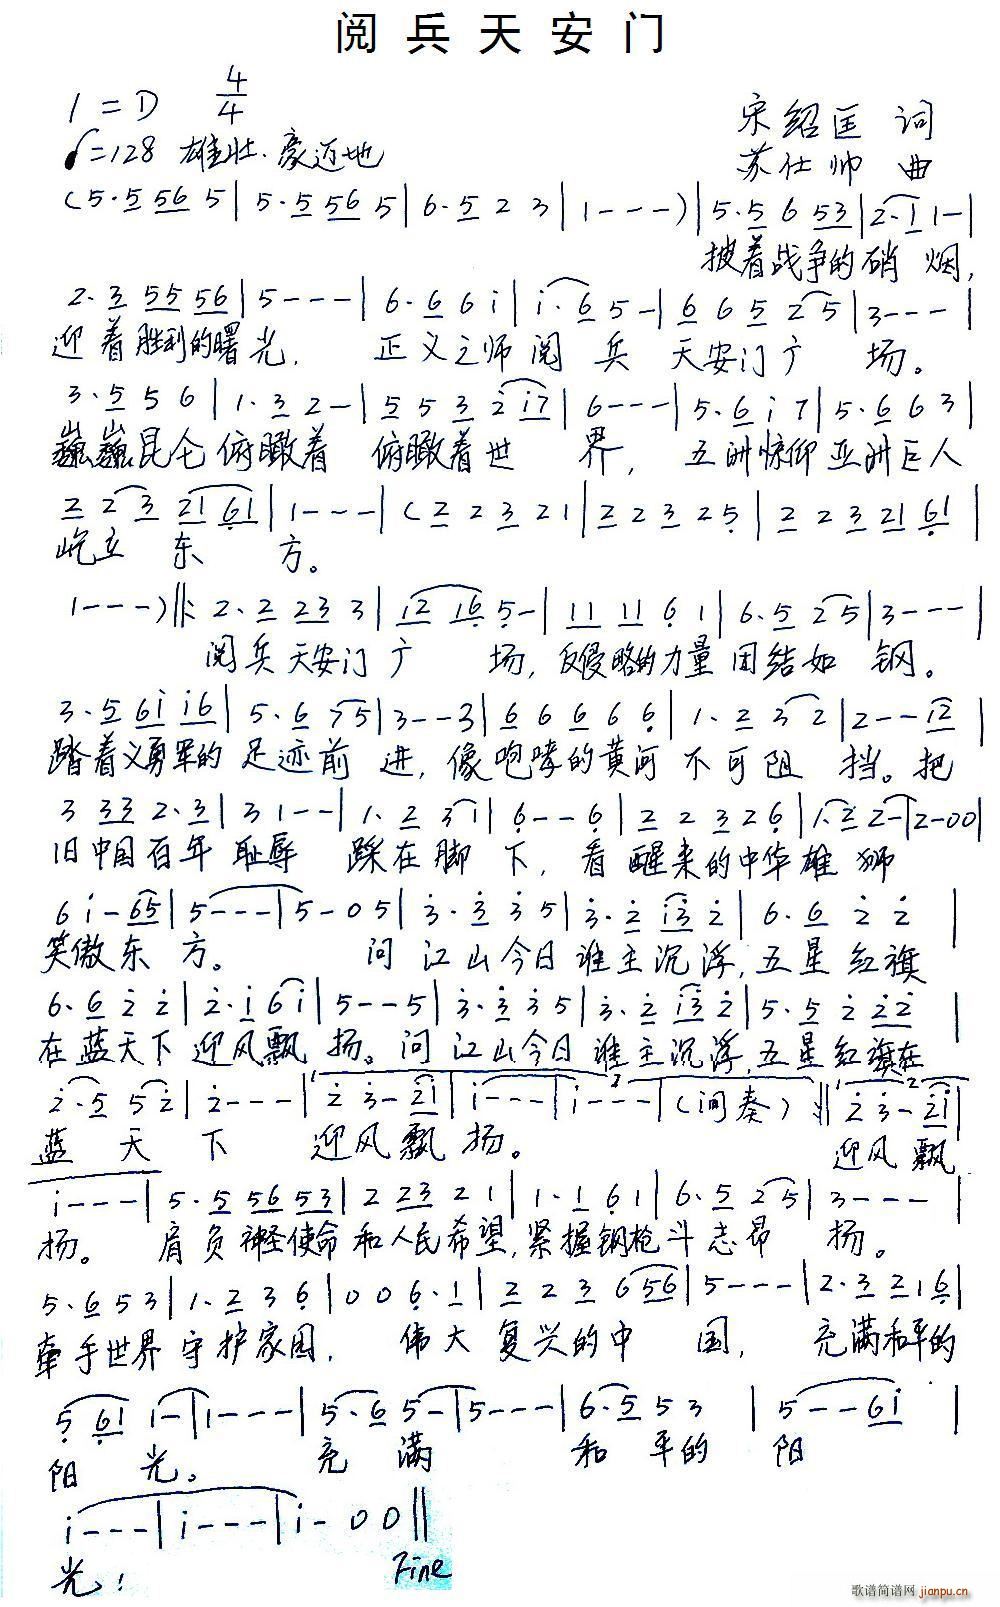 阅兵天安门
1=D 4/4
宋绍匡 词
♩=128 雄壮.豪迈地
苏仕帅 曲
(5.5 56 5|5.5 56 5|6.5 2 3|1---)|5.5 6 53|2.1 1-|
披着战争的硝烟,
2.3 55 56|5---|6.6 6 i|i.6 5-|6 6 5 2 5|3---|
迎着胜利的曙光, 正义之师阅 兵 天安门广 场。
3.5 5 6|1.3 2-|5 5 3 2 i7|6---|5.6 i 7|5.6 6 3|
巍巍昆仑俯瞰着 俯瞰着世 界, 五洲惊仰亚洲巨人
2 2 3 21 61|1---|(2 2 3 2 1|2 2 3 2 5|2 2 3 21 61|
屹立 东 方。
1---)‖: 2.2 23 3|12 16 5-|11 11 6 1|6.5 2 5|3---|
阅兵天安门广 场,反侵略的力量团结如 钢。
3.5 6i i6|5.6 7 5|3--3|6 6 6 6 6|1.2 3 2|2--12|
踏着义勇军的足迹前 进,像咆哮的黄河不可阻 挡。把
3 33 2.3|3 1--|1.2 3 1|6--6|2 2 3 2 6|1.2 2-|2-00|
旧中国百年耻辱 踩在脚 下,看醒来的中华雄狮
6 i-65|5---|5-05|3.3 3 5|3.2 i3 2|6.6 2 2|
笑傲东 方。 问江山今日谁主沉浮,五星红旗
6.6 2 2|2.i 6 i|5--5|3.3 3 5|3.2 i3 2|5.5 2 22|
在蓝天下迎风飘 扬。问江山今日谁主沉浮,五星红旗在
2.5 5 2|2---|2 3-2i|i---|i---|(间奏):‖2 3-2i|
蓝 天 下 迎风飘 扬。 迎风飘
i---|5.5 56 53|2 23 2 1|1.1 6 1|6.5 2 5|3---|
扬。 肩负神圣使命和人民希望,紧握钢枪斗志昂 扬。
5.6 5 3|1.2 3 6|0 0 6.1|2 2 3 6 56|5---|2.3 2 1 6|
牵手世界守护家园, 伟大复兴的中 国, 充满和平的
5 61 1-|1---|5.6 5-|5---|6.5 5 3|5--6i|
阳 光。 充 满 和 平的 阳
i---|i---|i-00‖
光! Fine
歌谱简谱网 jianpu.cn